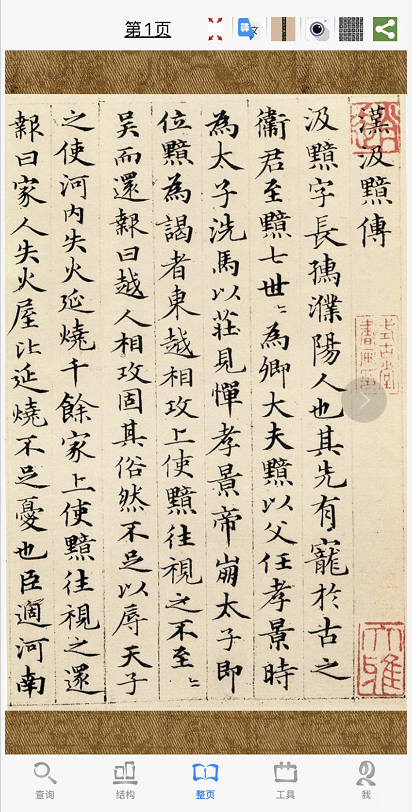 第1页
漢汲黯傳
汲黯字長孺濮陽人也其先有寵於古之
衛君至黯七世〻為卿大夫黯以父任孝景時
為太子洗馬以莊見憚孝景帝崩太子即
位黯為謁者東越相攻上使黯往視之不至〻
吴而還報曰越人相攻固其俗然不足以辱天子
之使河内失火延燒千餘家上使黯往視之還
報曰家人失火屋比延燒不足憂也臣適河南
查询
结构
整页
工具
我